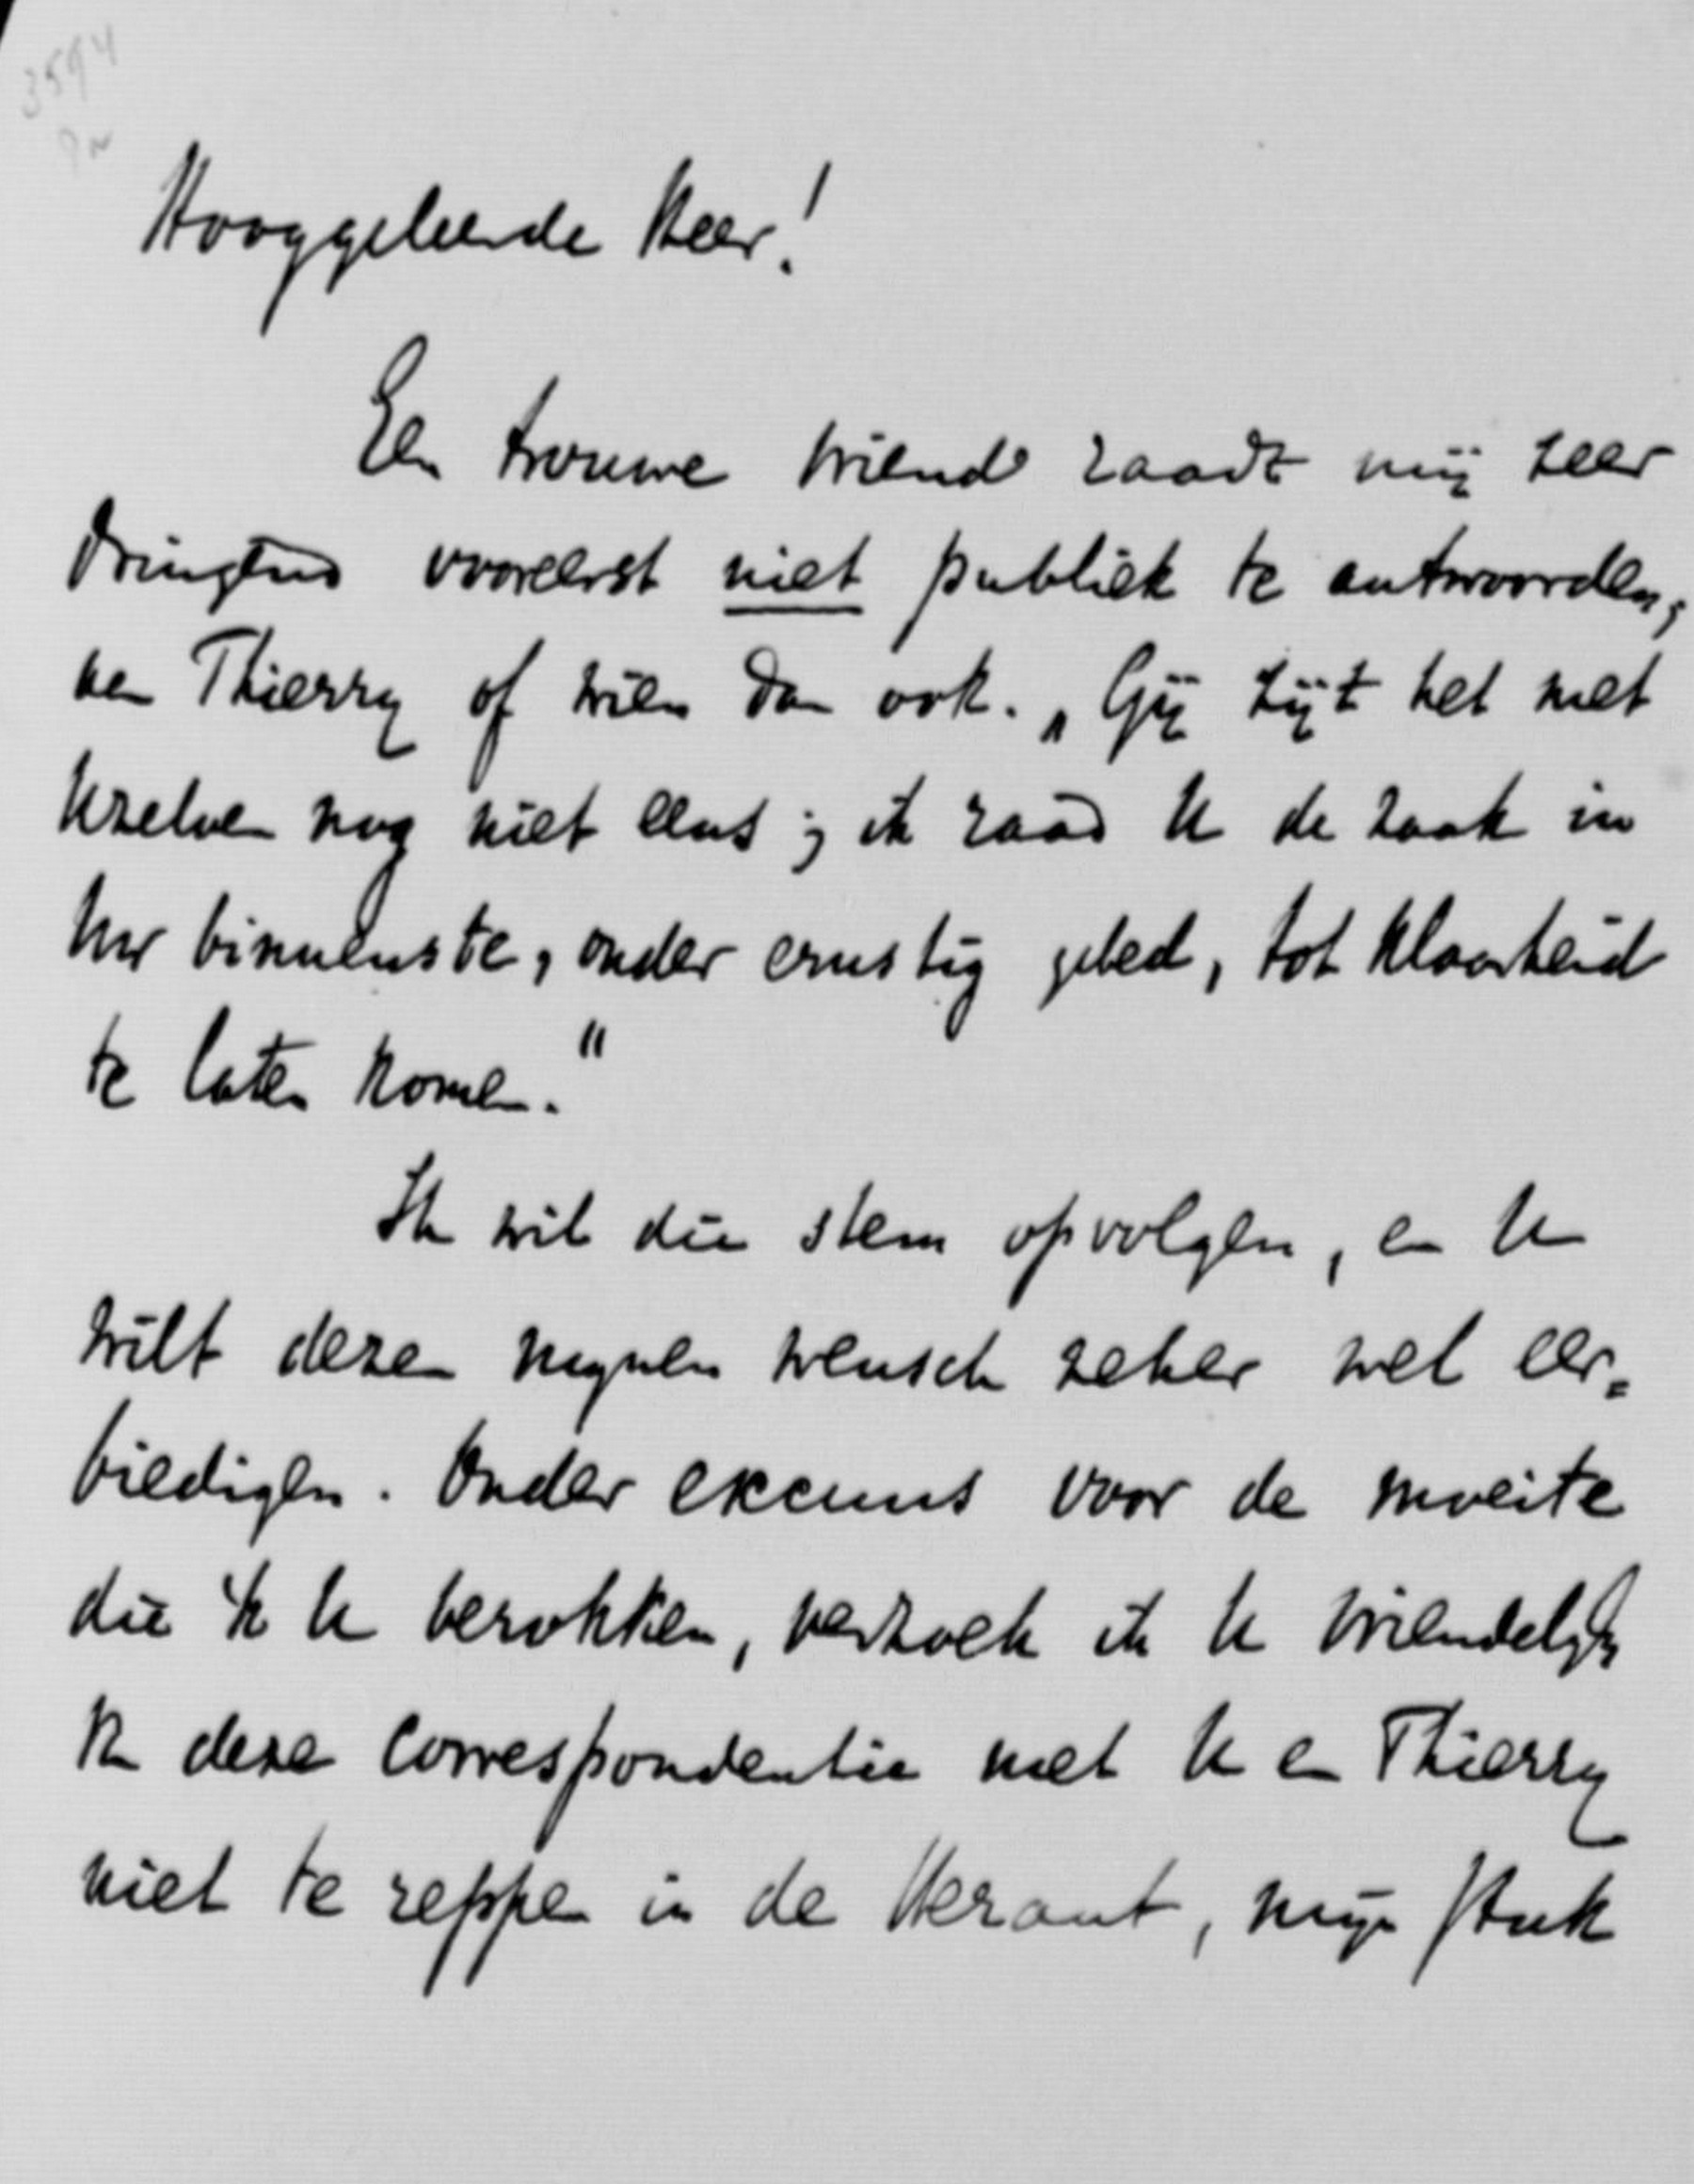 3594
Hooggeleerde Heer!
Een trouwe vriend raadt mij zeer
dringend vooreerst niet publiek te antwoorden,
hen Thierry of wien dan ook. „Gij zijt het met
Uzelven nog niet eens; ik raad U de zaak in
Uw binnenste, onder ernstig gebed, tot klaarheid
te laten komen."
Ik wil die stem opvolgen, en U
wilt dezen mijnen wensch zeker wel eer=
biedigen. Onder excuus voor de moeite
die ik U berokken, verzoek ik U vriendelijk
deze correspondentie met U en Thierry
niet te reppen in de Heraut, mijn stuk